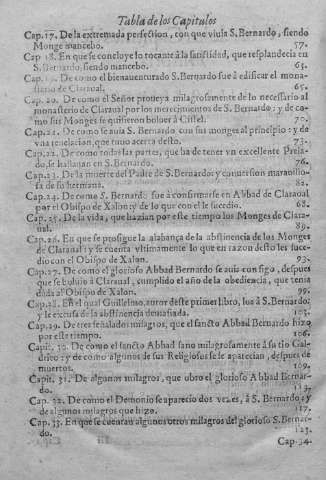 Tabla de los Capitulos
Cap. 17. De la extremada perfection, con que viuia S. Bernardo, siendo
Monge mancebo. 57.
Cap. 18. En que se concluye lo tocante à la sanctidad, que resplandecia en
S. Bernardo, siendo mancebo. 63.
Cap. 19. De como el bienauenturado S. Bernardo fue à edificar el mona-
sterio de Claraual. 65.
Cap. 20. De como el Señor proueya milagrosamente de lo necessario al
monasterio de Claraual por los merecimientos de S. Bernardo: y de co-
mo sus Monges se quisieron boluer à Cistel. 70.
Cap. 21. De como se auia S. Bernardo con sus monges al principio: y de
vna reuelacion, que tuuo acerca desto. 73.
Cap. 22. De como todas las partes, que ha de tener vn excellente Prela-
do, se hallaron en S. Bernardo. 76.
Cap. 23. De la muerte del Padre de S. Bernardo: y conuersion marauillo-
sa de su hermana. 82.
Cap. 24. De como S. Bernardo fue à consirmarse en Abbad de Claraual
por el Obispo de Xalon: y de lo que con el le sucedio. 68.
Cap. 25. De la vida, que hazian por este tiempo los Monges de Clara-
ual. 89.
Cap. 26. En que se prosigue la alabança de la abstinencia de los Monges
de Claraual: y se cuenta vltimamente lo que en razon desto les suce-
dio con el Obispo de Xalon. 93.
Cap. 27. De como el glorioso Abbad Bernardo se auia consigo, despues
que se boluio à Claraual, cumplido el año de la obediencia, que tenia
dada al Obispo de Xalon. 99.
Cap. 28. En el qual Guillelmo, autor deste primer libro, loa à S. Bernardo:
y le escusa de la abstinencia demasiada. 103.
Cap. 29. De tres señalados milagros, que el sancto Abbad Bernardo hizo
por este tiempo. 106.
Capit. 30. De como el sancto Abbad sano milagrosamente à su tio Gal-
drico: y de como algunos de sus Religiosos se le aparecian, despues de
muertos. 109.
Capit. 31. De algunos milagros, que obro el glorioso Abbad Bernar-
do. 113.
Cap. 32. De como el Demonio se aparecio dos vezes, à S. Bernardo: y
de algunos milagros que hizo. 117.
Cap. 33. En que se cuentan algunos otros milagros del glorioso S. Bernar-
do. 123.
Cap. 34.